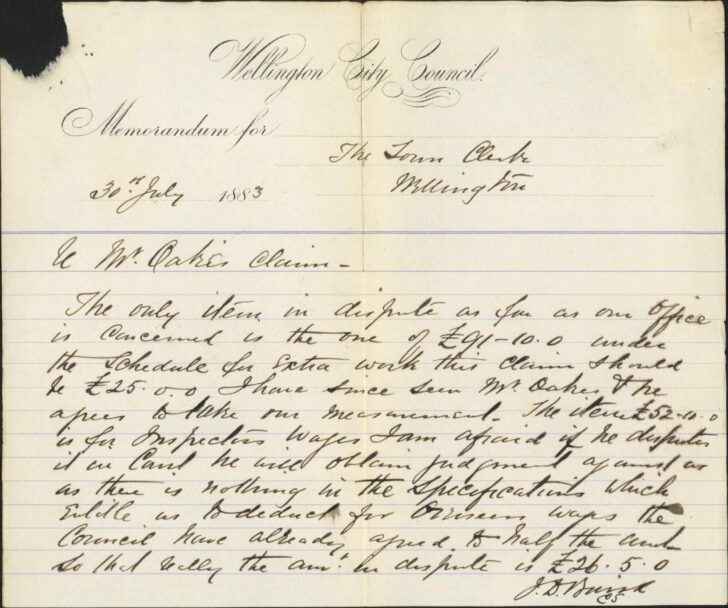 Wellington City Council.
Memorandum for
The Town Clerk
Wellington
30th July 1883
Re Mr. Oakes Claim -
The only item in dispute as far as our office
is concerned is the one of £91-10.0 under
the Schedule for Extra work this claim should
be £25.0.0 I have since seen Mr. Oakes & he
agrees to take our measurement. The item £52-10.0
is for Inspectors wages I am afraid if he disputes
it in Court he will obtain judgment against us
as there is nothing in the Specifications which
Entitle us to deduct for Overseers wages the
Council have already agreed to half the amt
so that really the amt. in dispute is £26.5.0
J.D. Baird